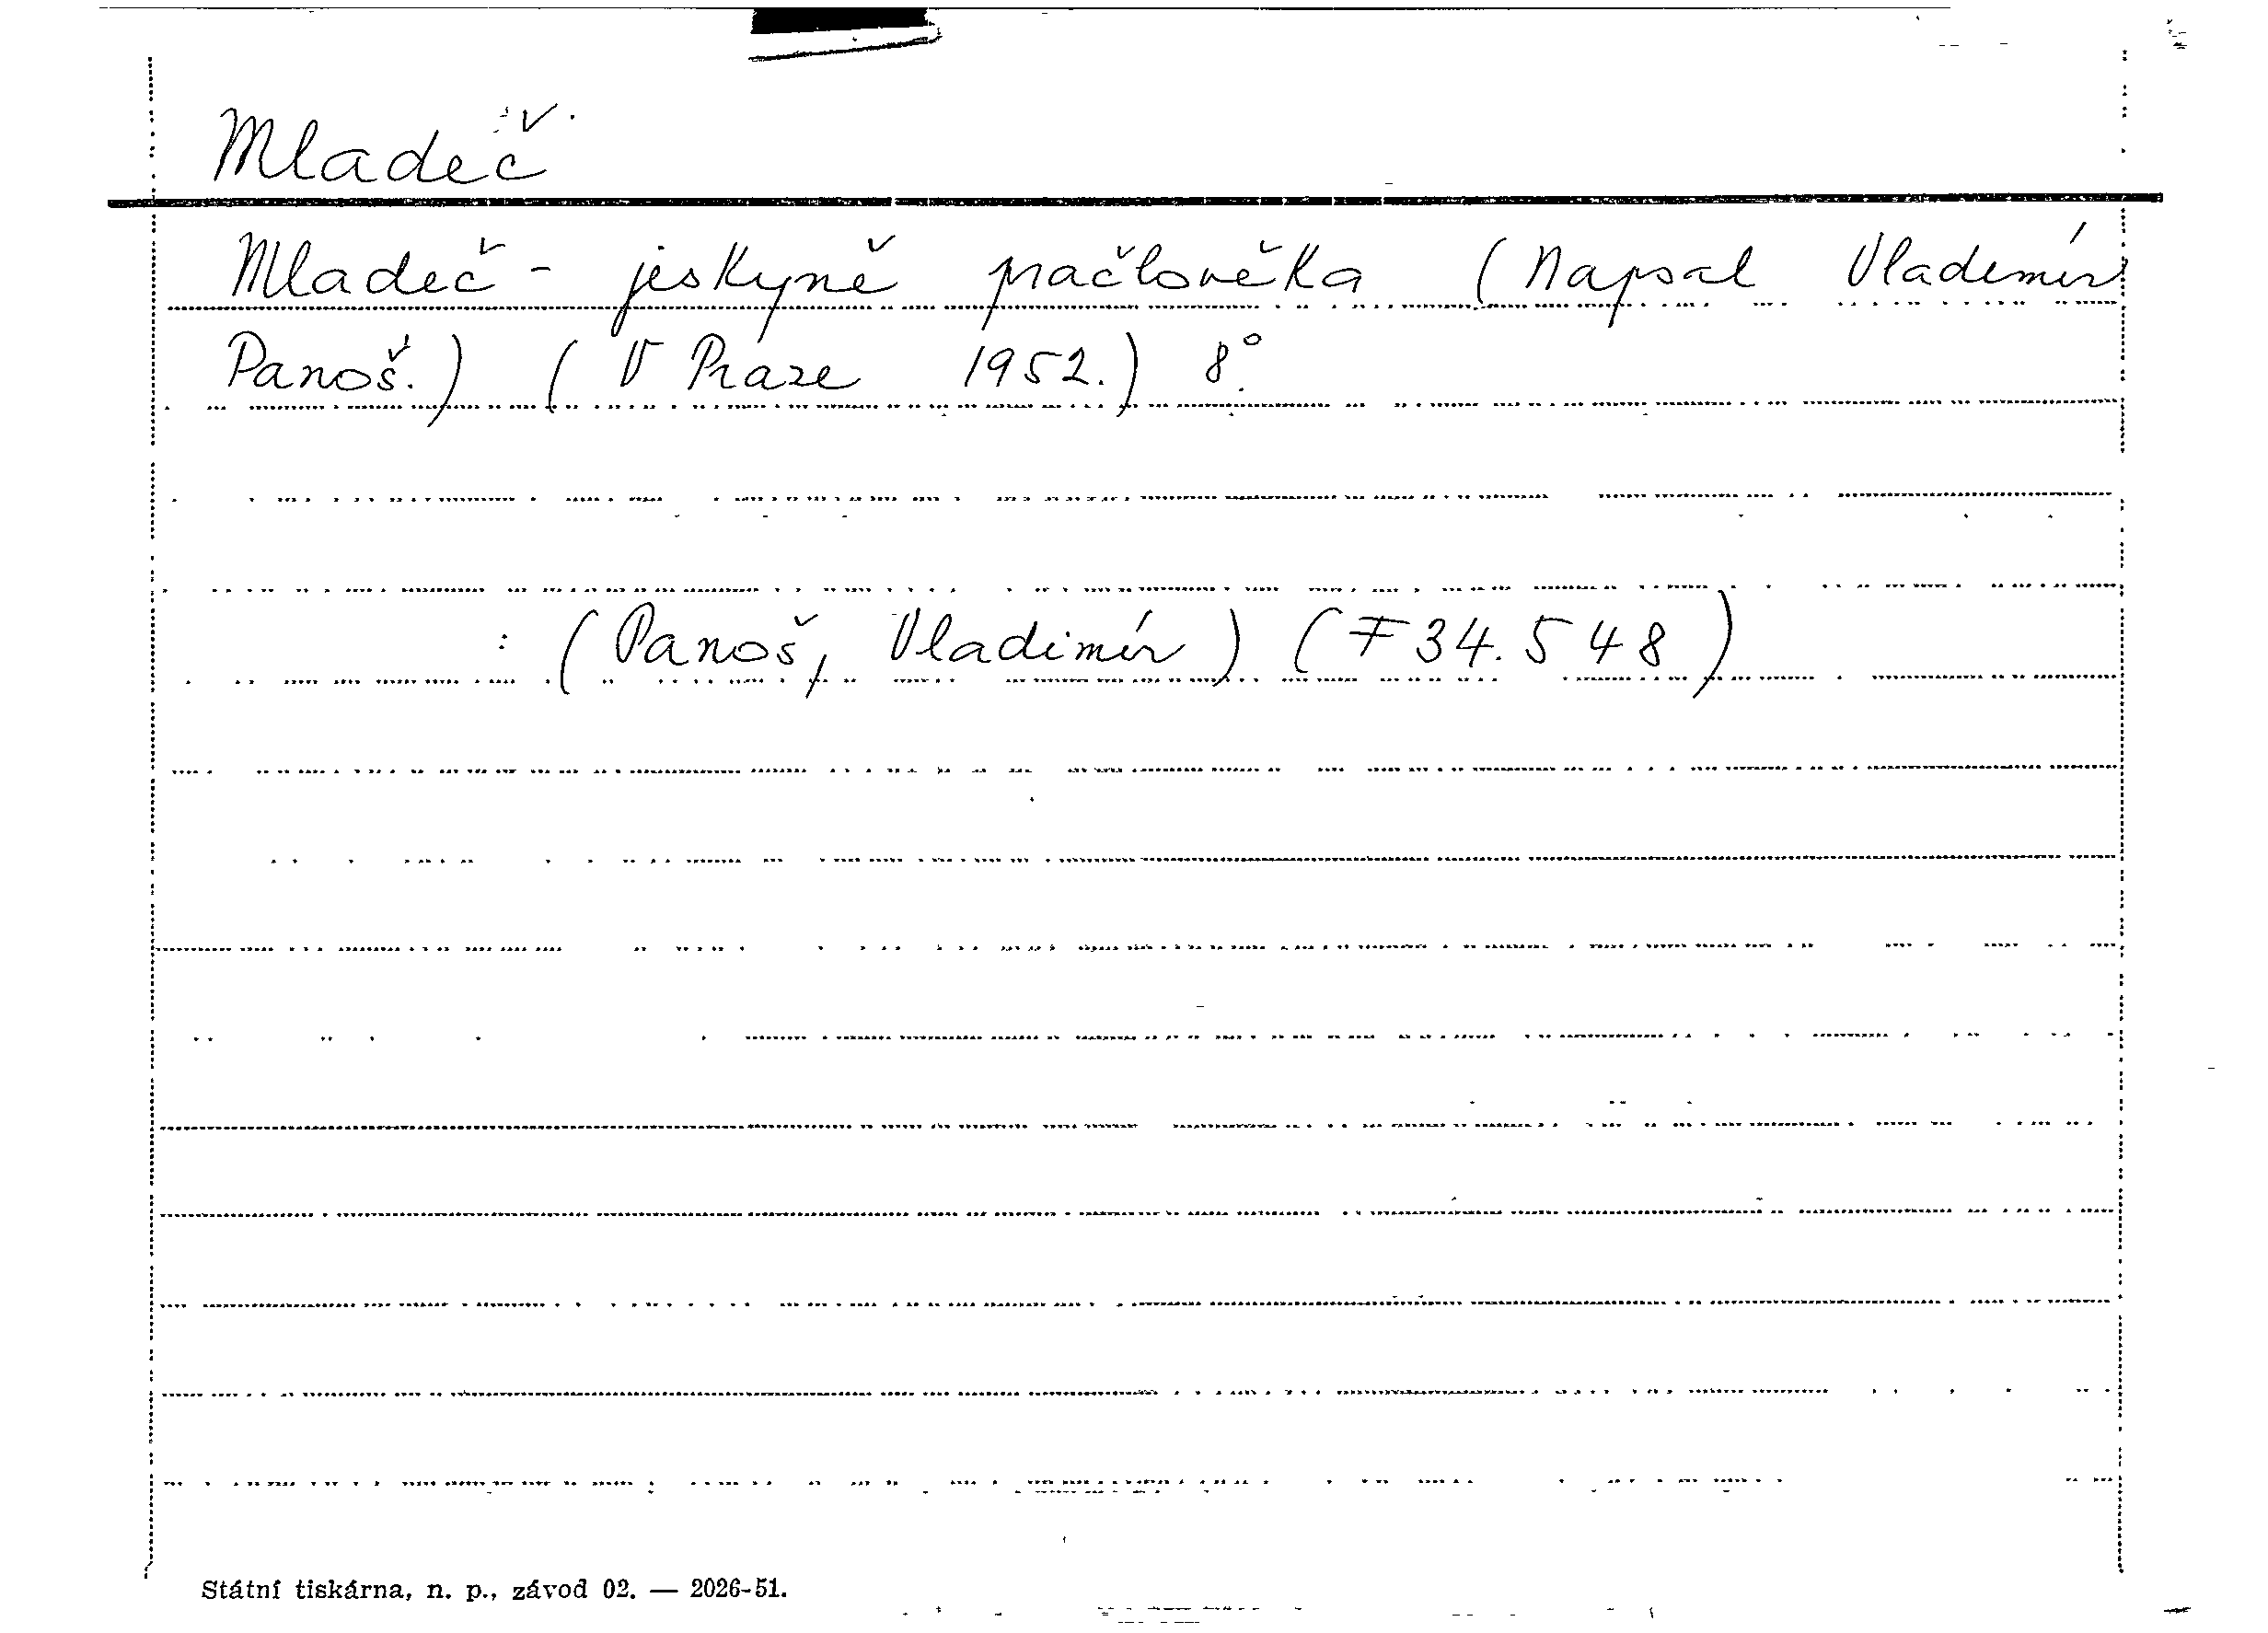 Mladeč
Mladeč - jeskyně pračlověka (Napsal Vladimír
Panoš.) (V Praze 1952.) 8°.
: (Panoš, Vladimír) (F 34.548)
Státní tiskárna, n. p., závod 02. — 2026-51.